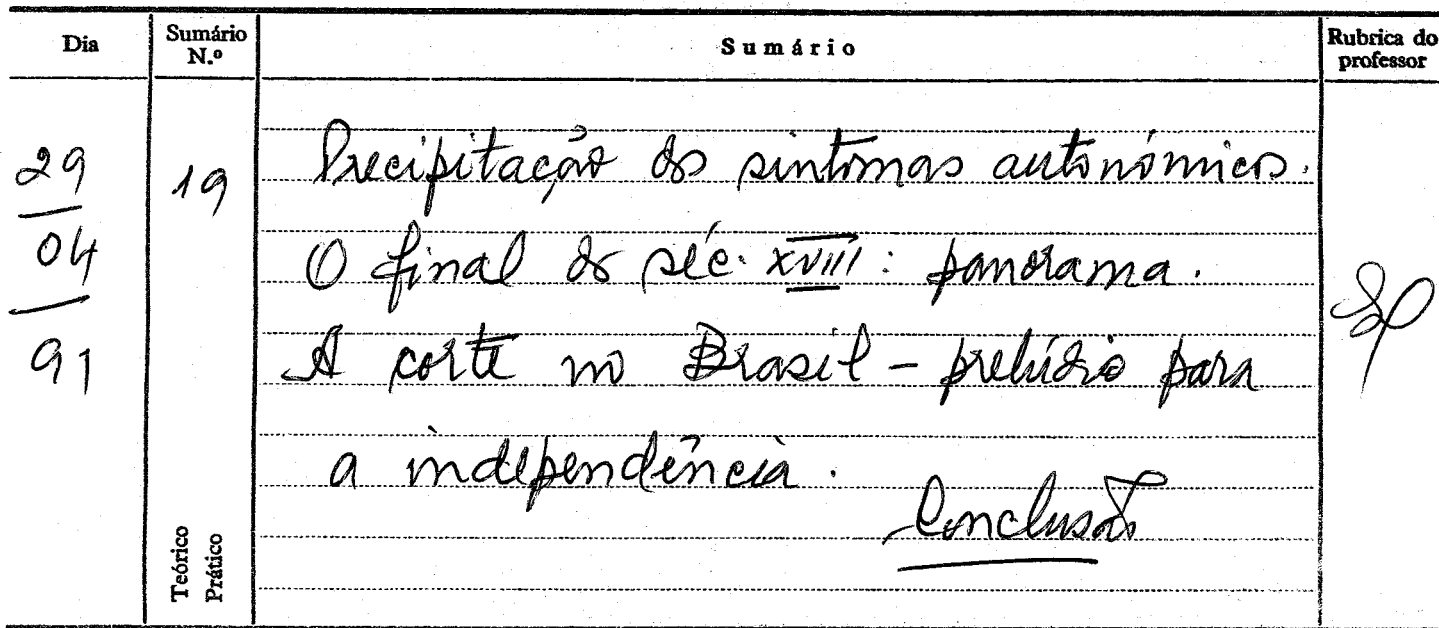 Dia
Sumário N.º
Sumário
Rubrica do professor
29
04
91
19
Precipitação do sintomas autonómicos.
O final do séc. XVIII: panorama.
A corte no Brasil – prelúdio para
a independência.
Conclusão
Teórico
Prático